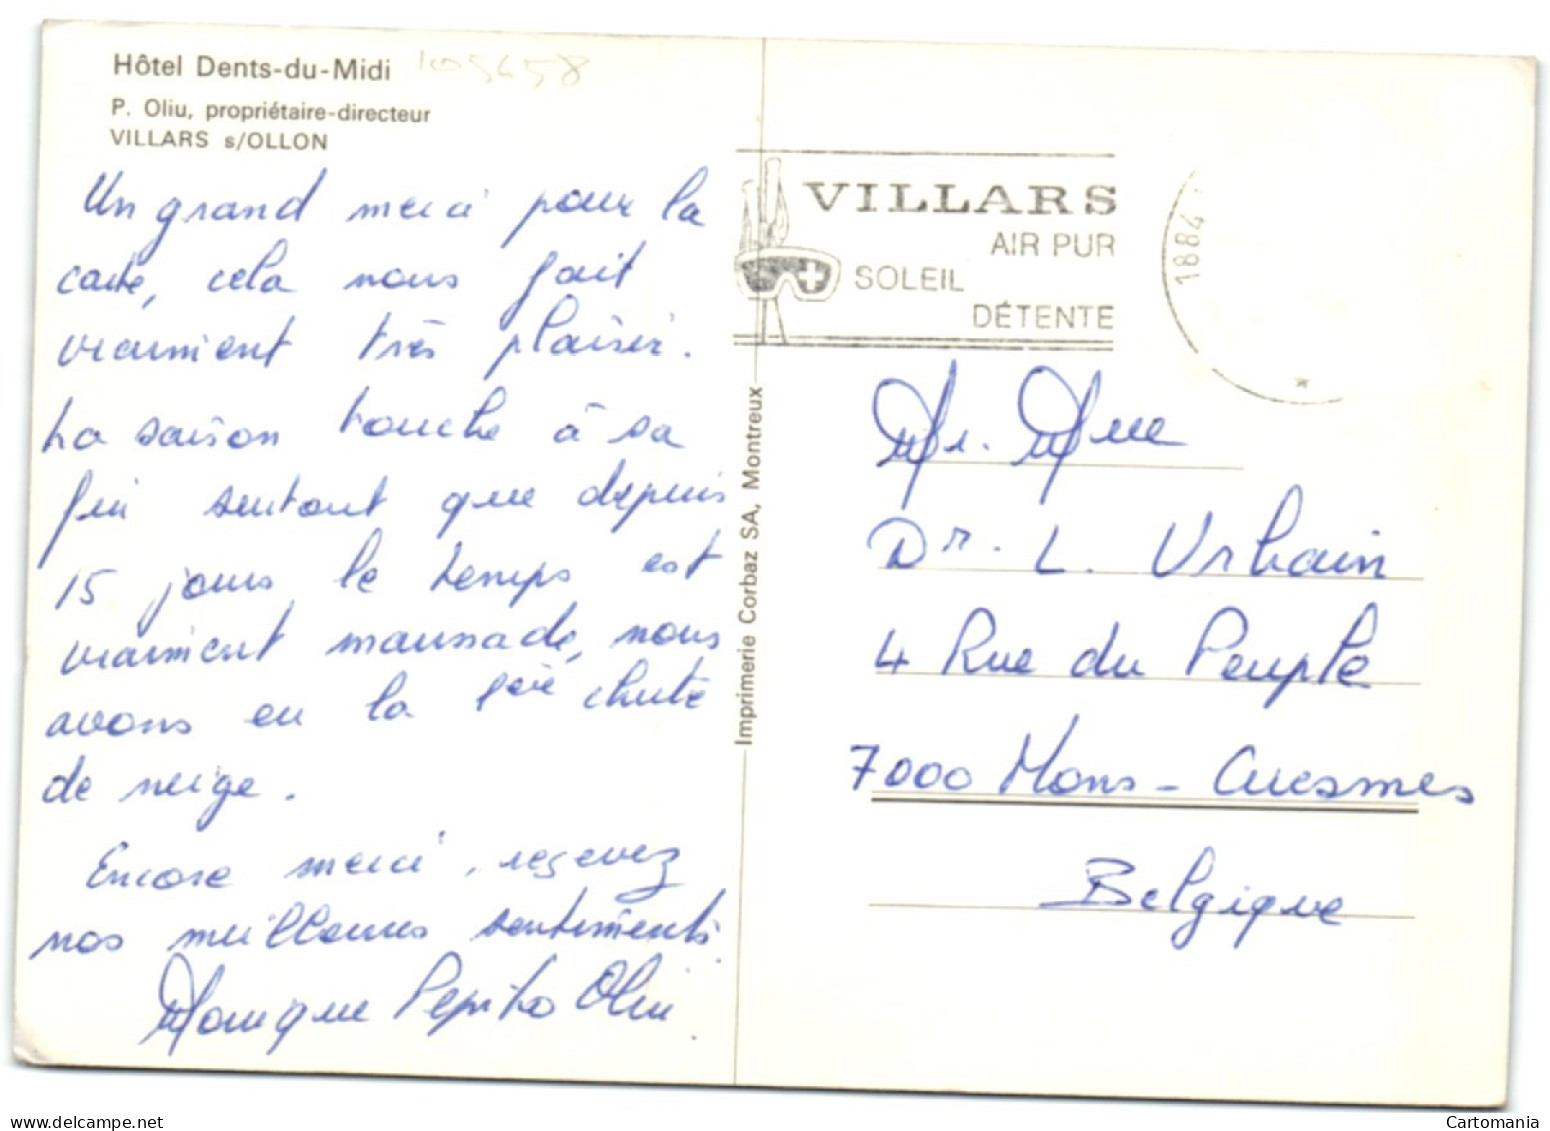 Hôtel Dents-du-Midi 105658
P. Oliu, propriétaire-directeur
VILLARS s/OLLON
Un grand merci pour la
carte, cela nous fait
vraiment très plaisir.
La saison touche à sa
fin surtout que depuis
15 jours le temps est
vraiment maussade, nous
avons eu la 1ère chute
de neige.
Encore merci, recevez
nos meilleures sentiments.
Monique Pepito Oliu.
Imprimerie Corbaz SA, Montreux
VILLARS
AIR PUR
SOLEIL
DÉTENTE
1884
Mr. Mme
Dr. L. Urbain
4 Rue du Peuple
7000 Mons - Cuesmes
Belgique
Cartomania
https://www.delcampe.net